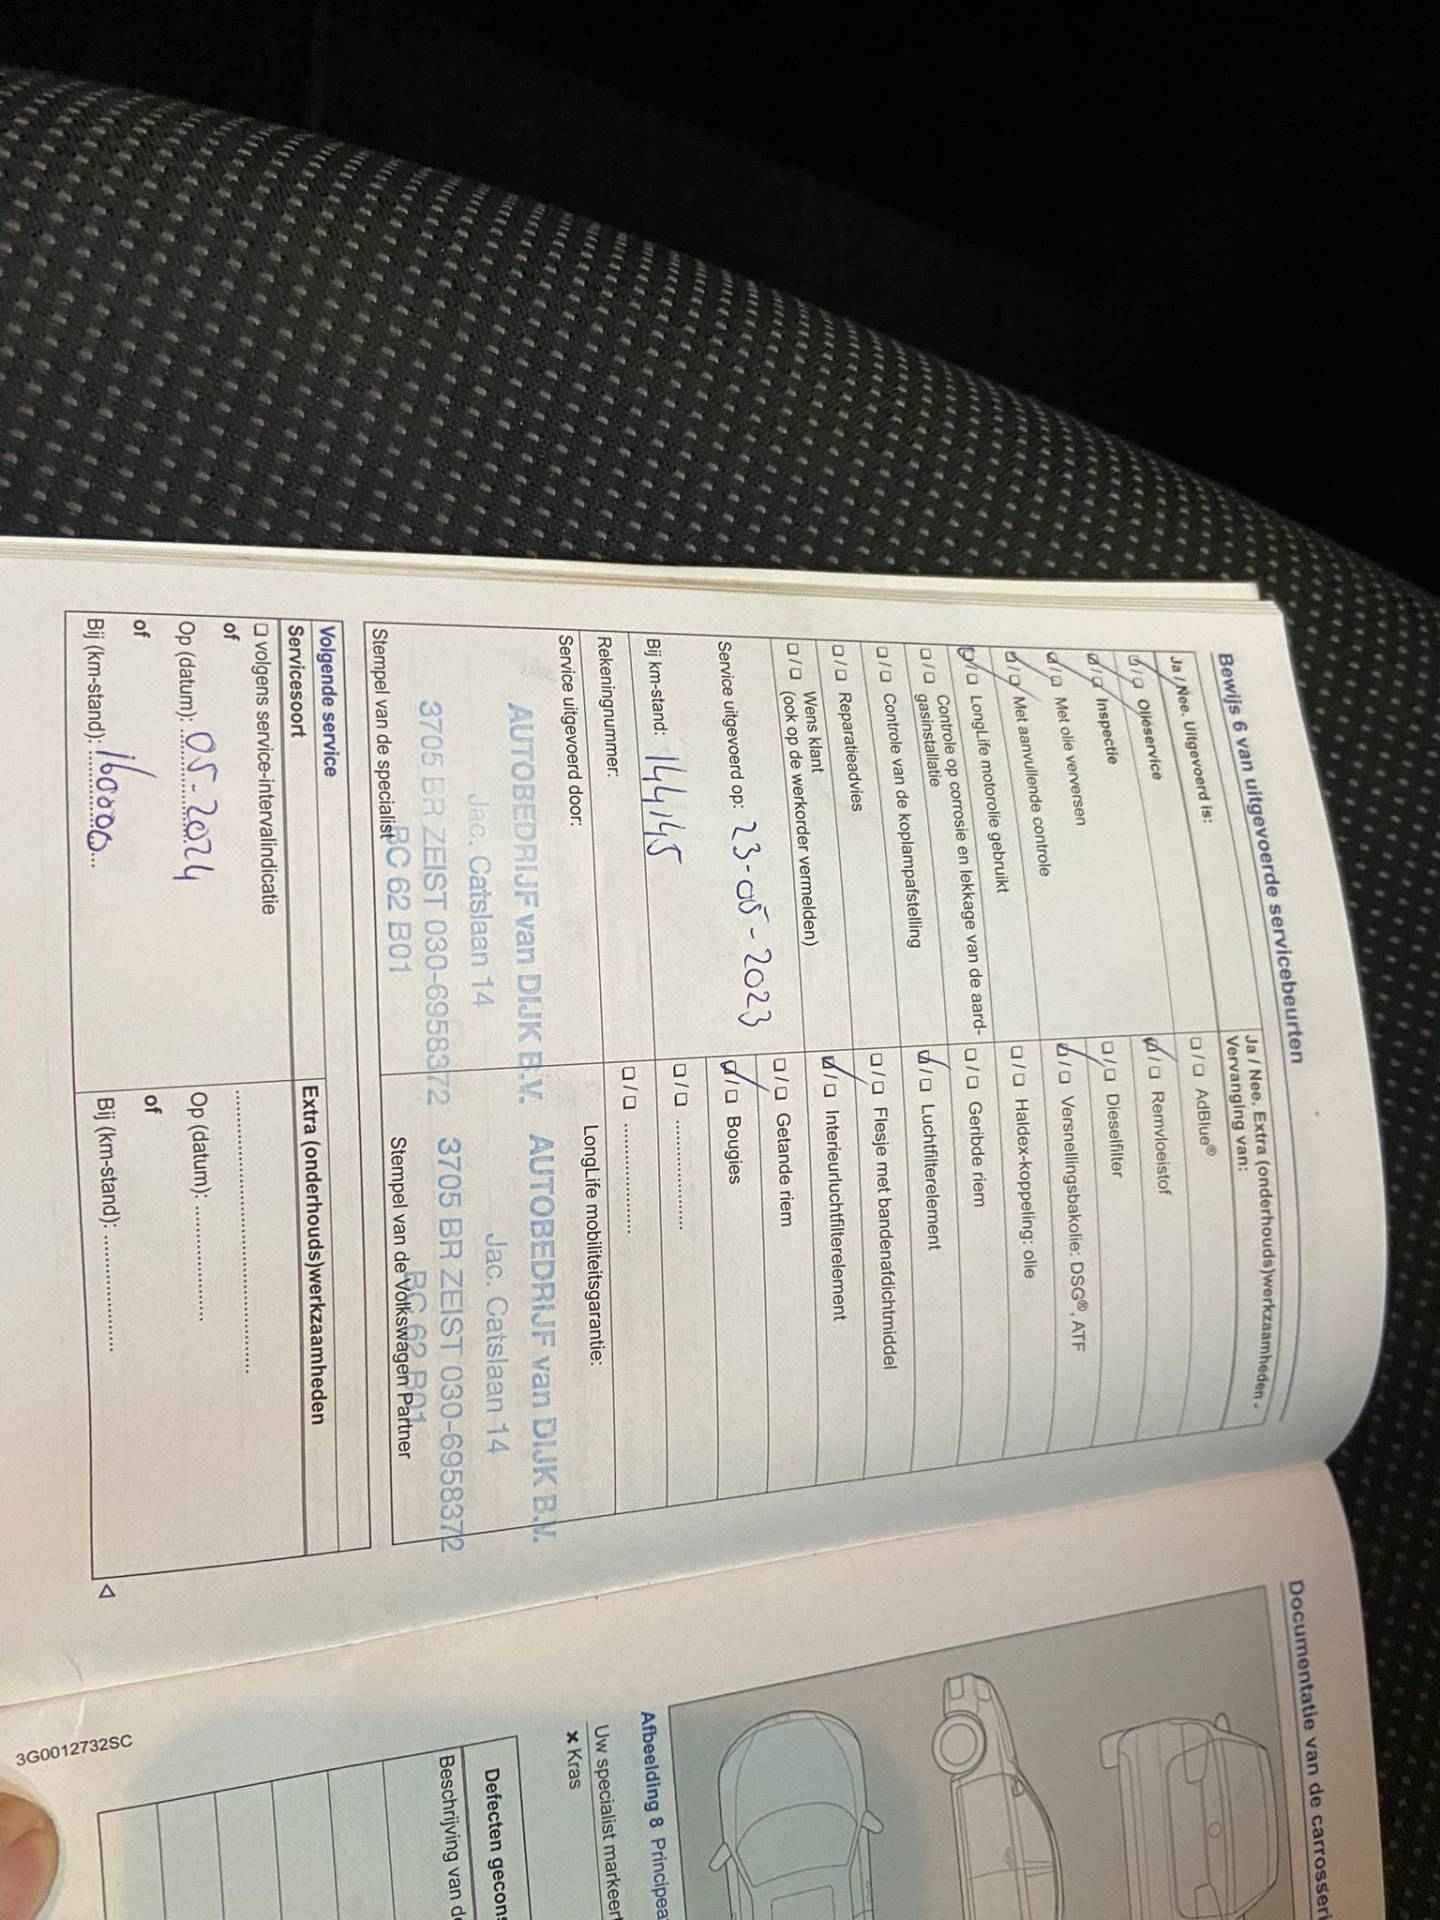 Bewijs 6 van uitgevoerde servicebeurten
Ja / Nee. Uitgevoerd is:
❑ / ❑ Olieservice
❑ / ❑ Inspectie
❑ / ❑ Met olie verversen
❑ / ❑ Met aanvullende controle
❑ / ❑ LongLife motorolie gebruikt
❑ / ❑ Controle op corrosie en lekkage van de aard-
gasinstallatie
❑ / ❑ Controle van de koplampafstelling
❑ / ❑ Reparatieadvies
❑ / ❑ Wens klant
(ook op de werkorder vermelden)
Service uitgevoerd op: 23-05-2023
Bij km-stand: 144145
Rekeningnummer:
Service uitgevoerd door:
AUTOBEDRIJF van DIJK B.V.
Jac. Catslaan 14
3705 BR ZEIST 030-6958372
BC 62 B01
Stempel van de specialist
Ja / Nee. Extra (onderhouds)werkzaamheden -
Vervanging van:
❑ / ❑ AdBlue®
❑ / ❑ Remvloeistof
❑ / ❑ Dieselfilter
❑ / ❑ Versnellingsbakolie: DSG®, ATF
❑ / ❑ Haldex-koppeling: olie
❑ / ❑ Geribde riem
❑ / ❑ Luchtfilterelement
❑ / ❑ Flesje met bandenafdichtmiddel
❑ / ❑ Interieurluchtfilterelement
❑ / ❑ Getande riem
❑ / ❑ Bougies
❑ / ❑ ..................
❑ / ❑ ..................
LongLife mobiliteitsgarantie:
AUTOBEDRIJF van DIJK B.V.
Jac. Catslaan 14
3705 BR ZEIST 030-6958372
BC 62 B01
Stempel van de Volkswagen Partner
Volgende service
Servicesoort
❑ volgens service-intervalindicatie
of
Op (datum): 05-2024
of
Bij (km-stand): 160000
Extra (onderhouds)werkzaamheden
Op (datum): ..................
of
Bij (km-stand): ..................
Documentatie van de carrosseri
Afbeelding 8 Principea
Uw specialist markeert
x Kras
Defecten gecons
Beschrijving van de
3G0012732SC